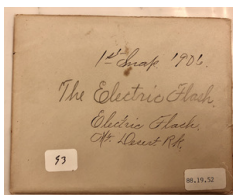 1st Snap 1906.
The Electric Flash.
Electric Flash.
Mt. Desert Rk.
93
80.19.52